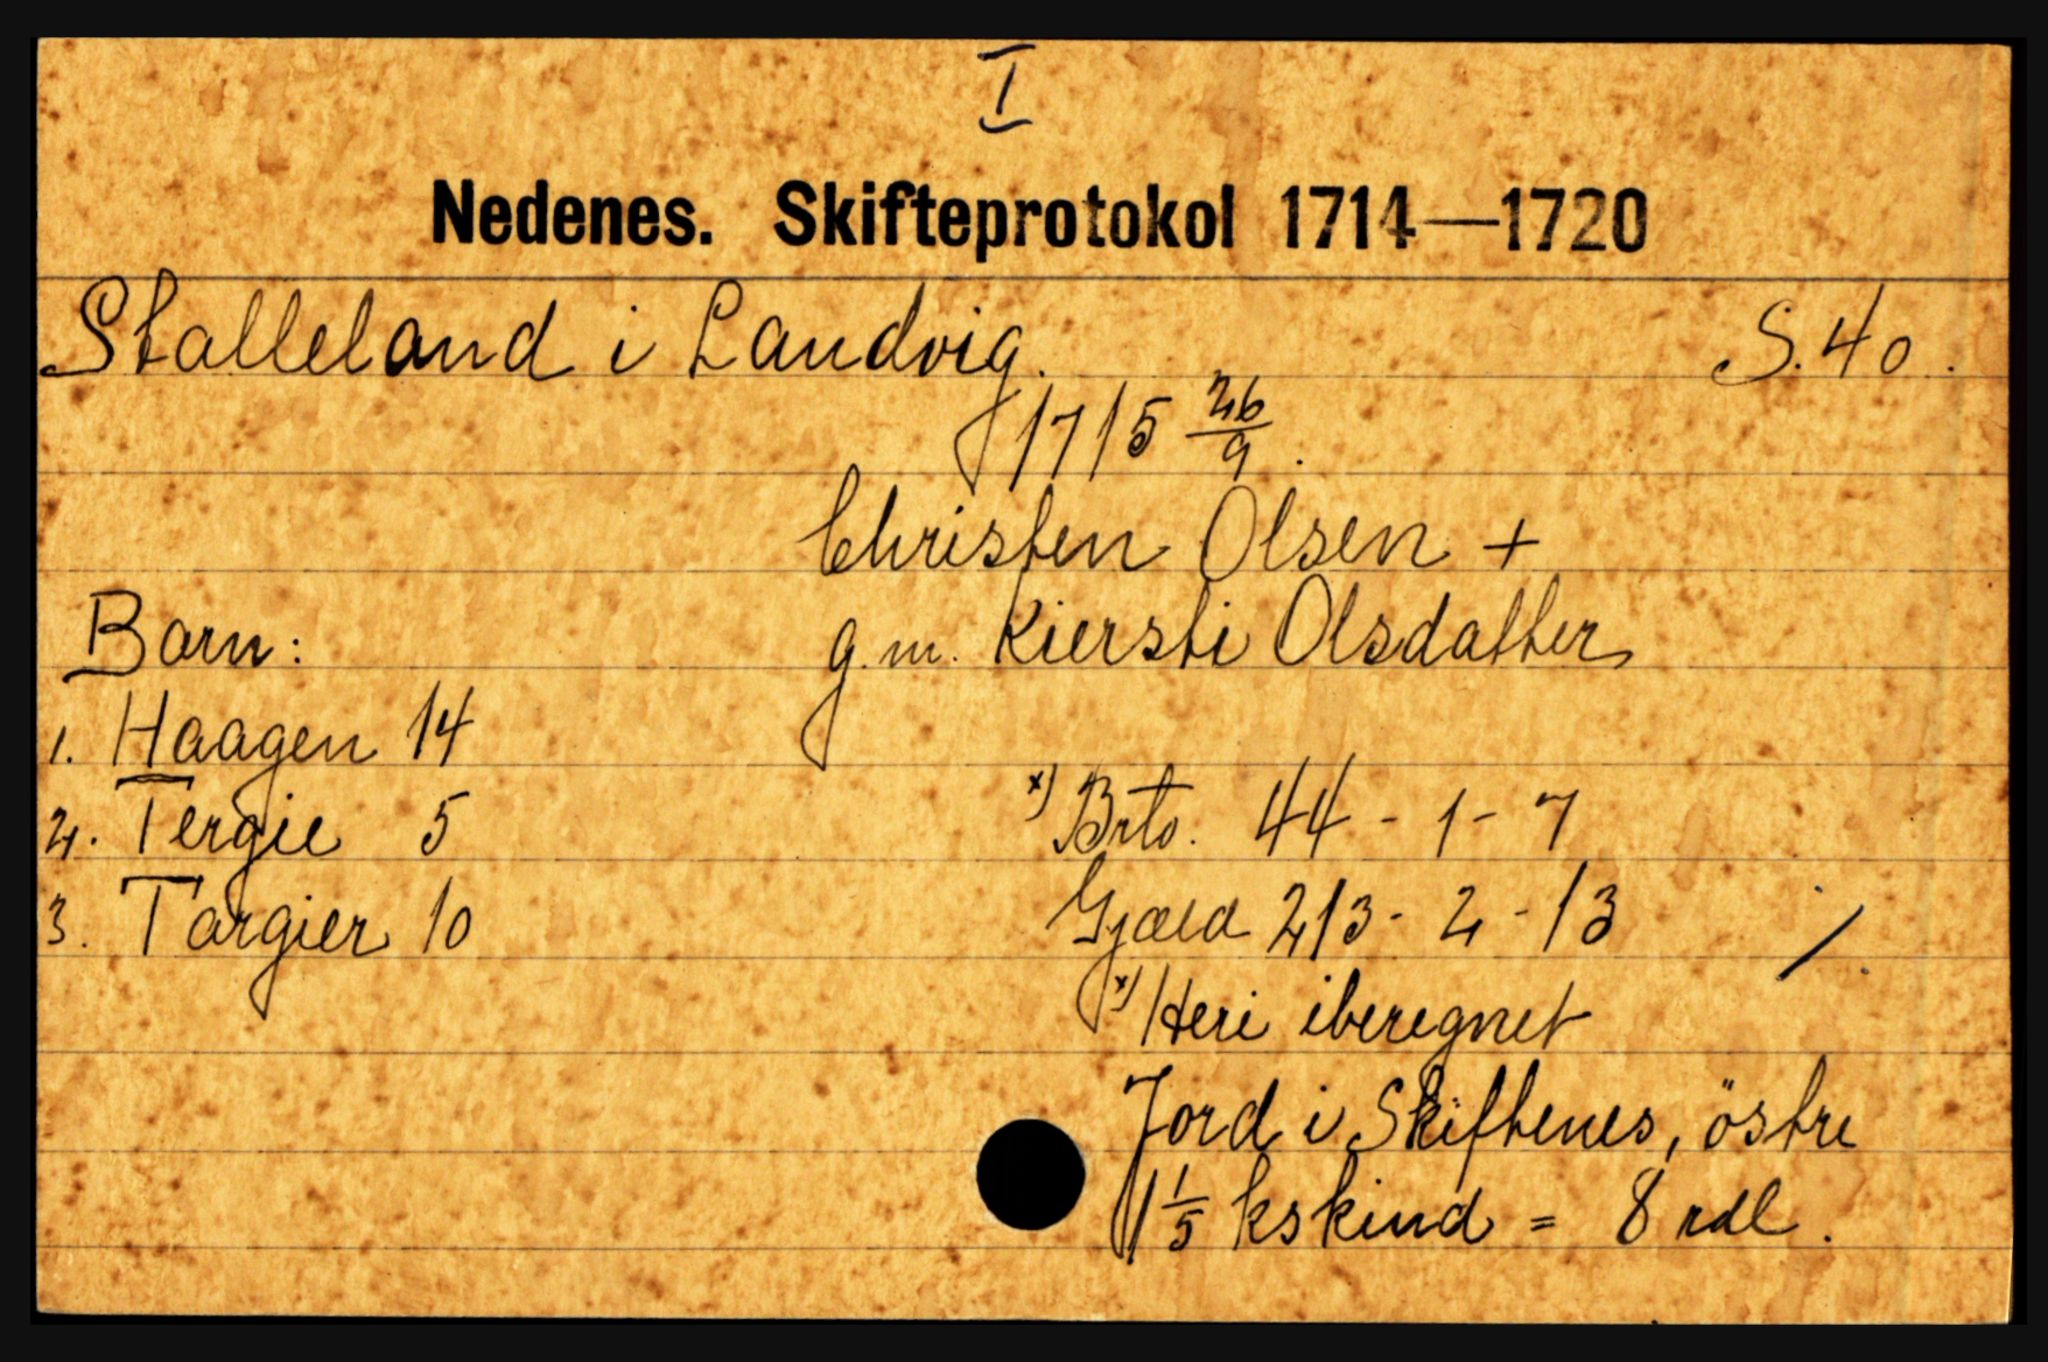 I
Nedenes. Skifteprotokol 1714—1720
Stalleland i Landvig. S. 40.
1715 26/9.
Christen Olsen +
Barn: g.m. Kiersti Olsdatter
1. Haagen 14
2. Tergie 5 x) Brto. 44 - 1 - 7
3. Targier 10 Gjæld 213 - 2 - 13 /.
x) Heri iberegnet
Jord i Skiftenes, östre
1 1/5 kskind = 8 rdl.